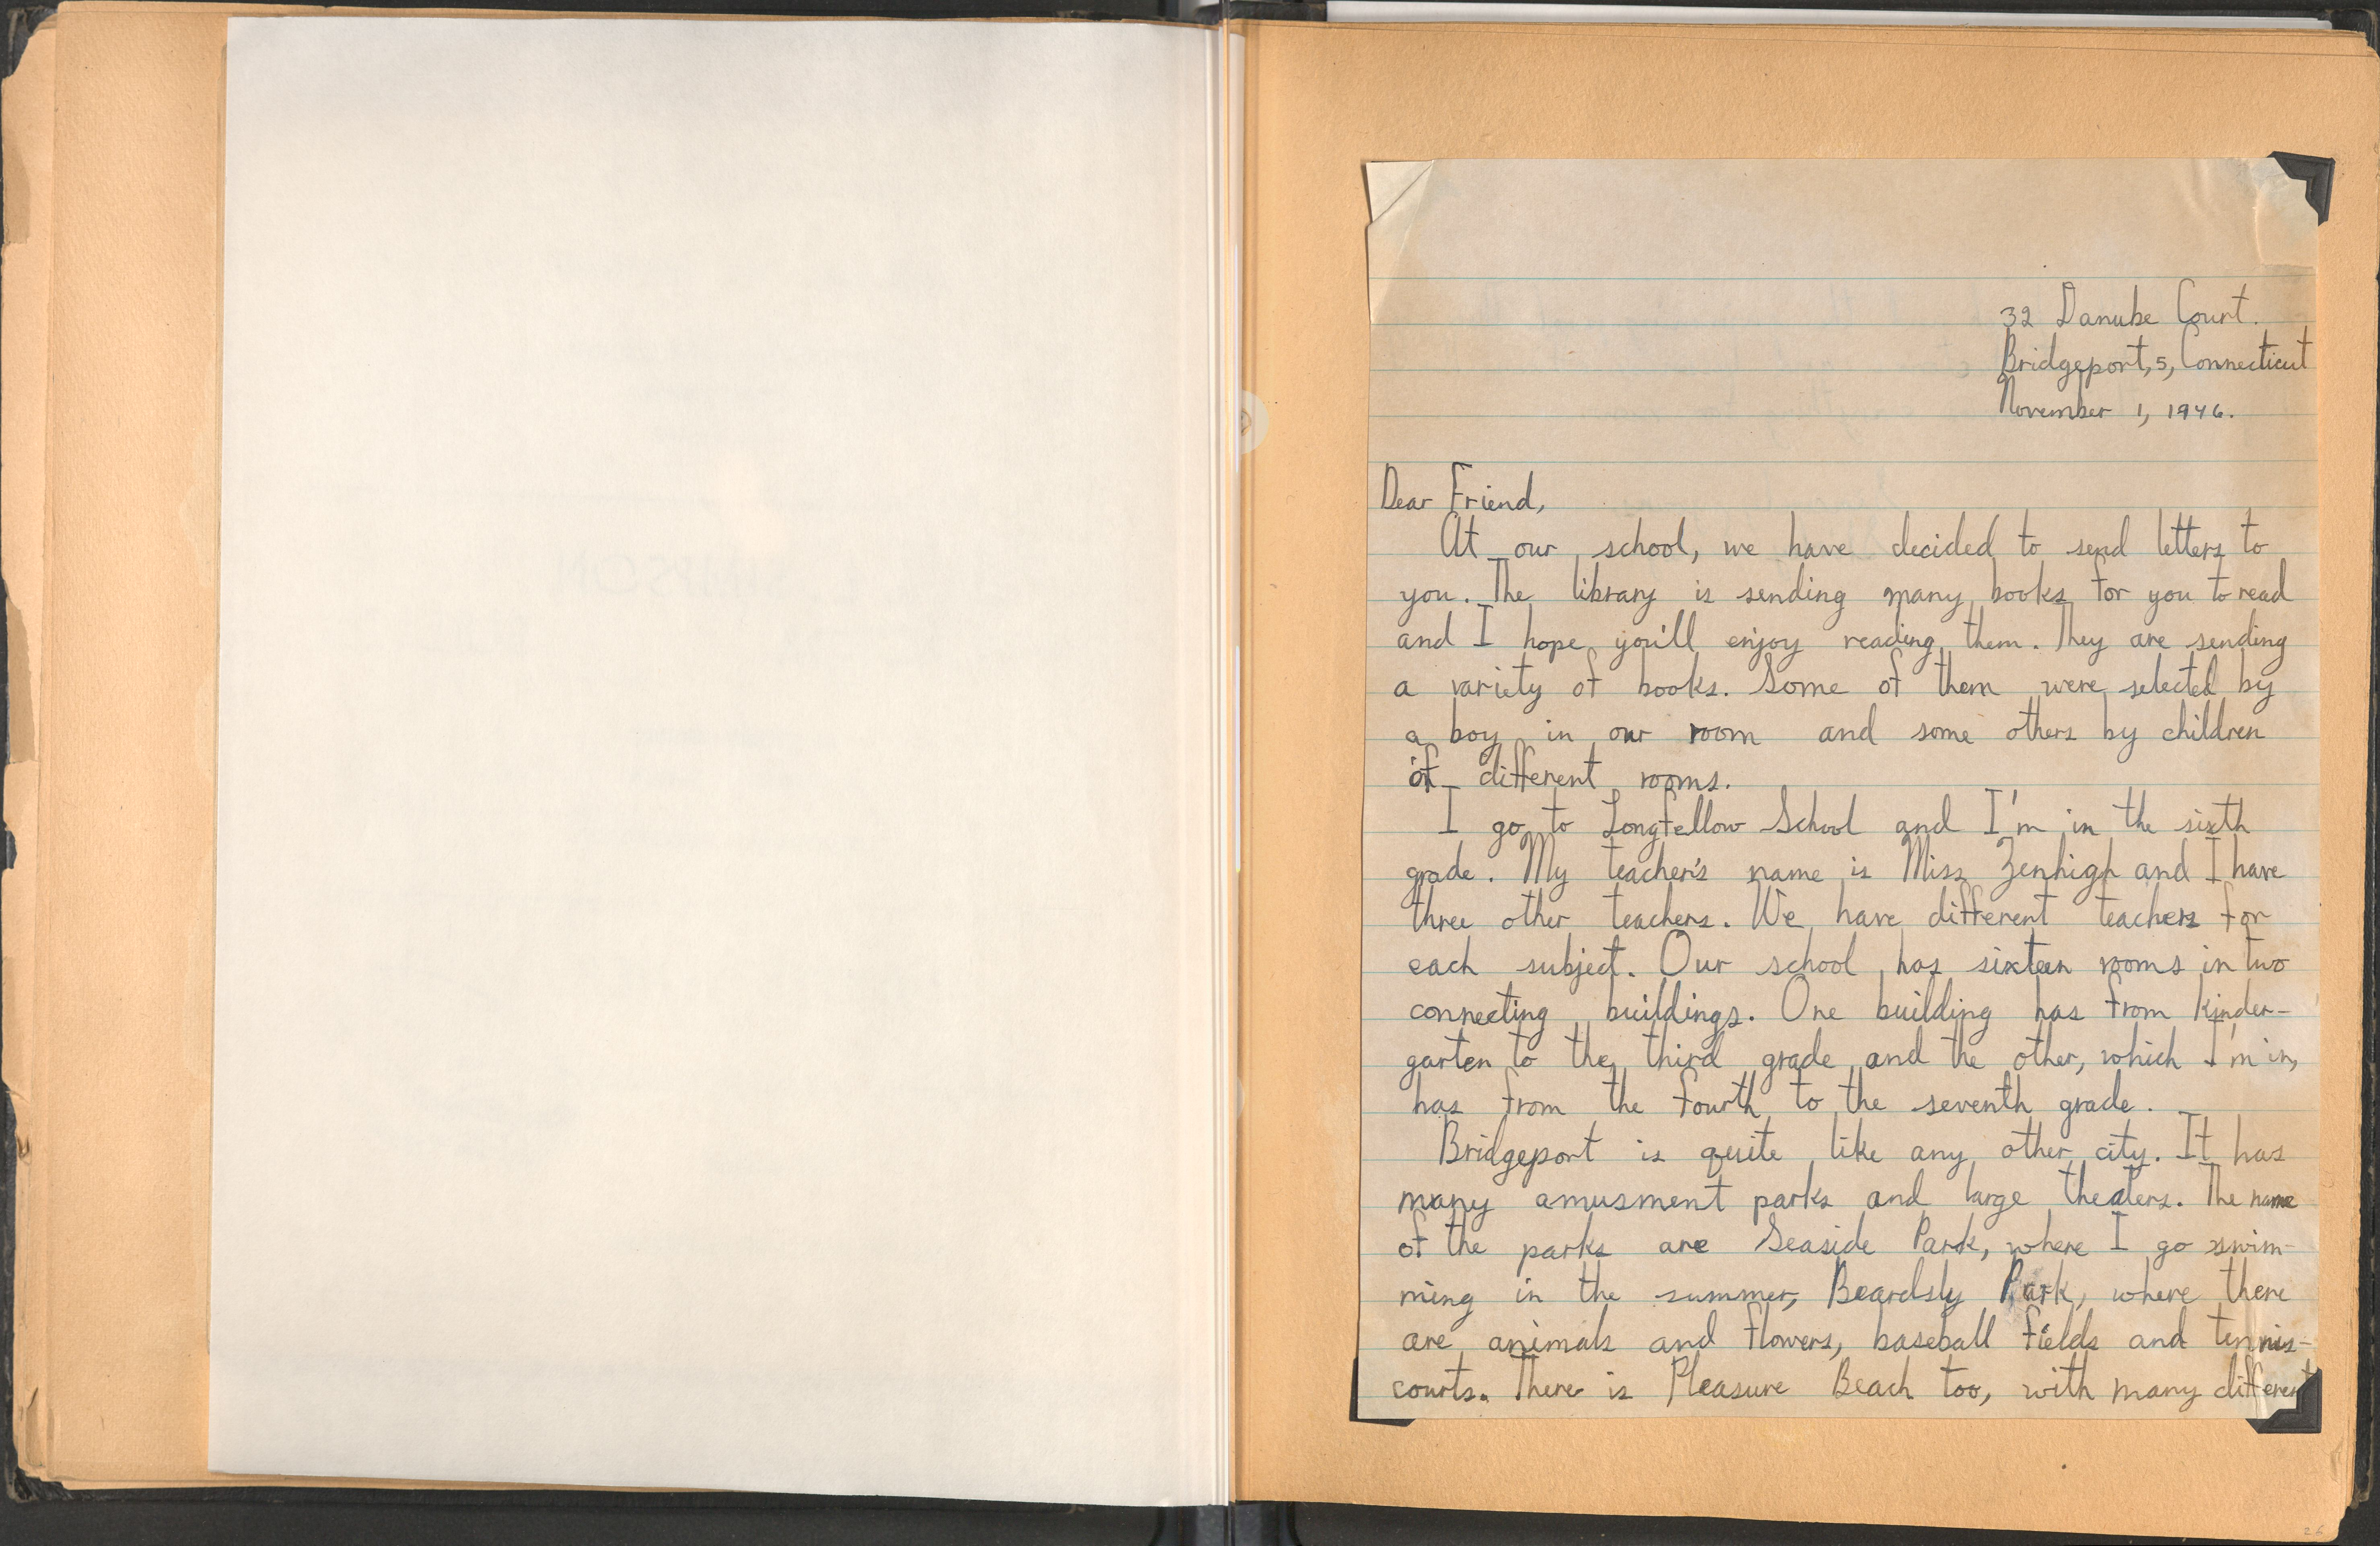 32 Danube Court.
Bridgeport, 5, Connecticut
November 1, 1946.
Dear Friend,
At our school, we have decided to send letters to
you. The library is sending many books for you to read
and I hope you'll enjoy reading them. They are sending
a variety of books. Some of them were selected by
a boy in our room and some others by children
of different rooms.
I go to Longfellow School and I'm in the sixth
grade. My teacher's name is Miss Zenhigh and I have
three other teachers. We have different teachers for
each subject. Our school has sixteen rooms in two
connecting buildings. One building has from kinder-
garten to the third grade and the other, which I'm in,
has from the fourth to the seventh grade.
Bridgeport is quite like any other city. It has
many amusment parks and large theaters. The name
of the parks are Seaside Park, where I go swim-
ming in the summer, Beardsly Park, where there
are animals and flowers, baseball fields and tennis-
courts. There is Pleasure Beach too, with many different
26